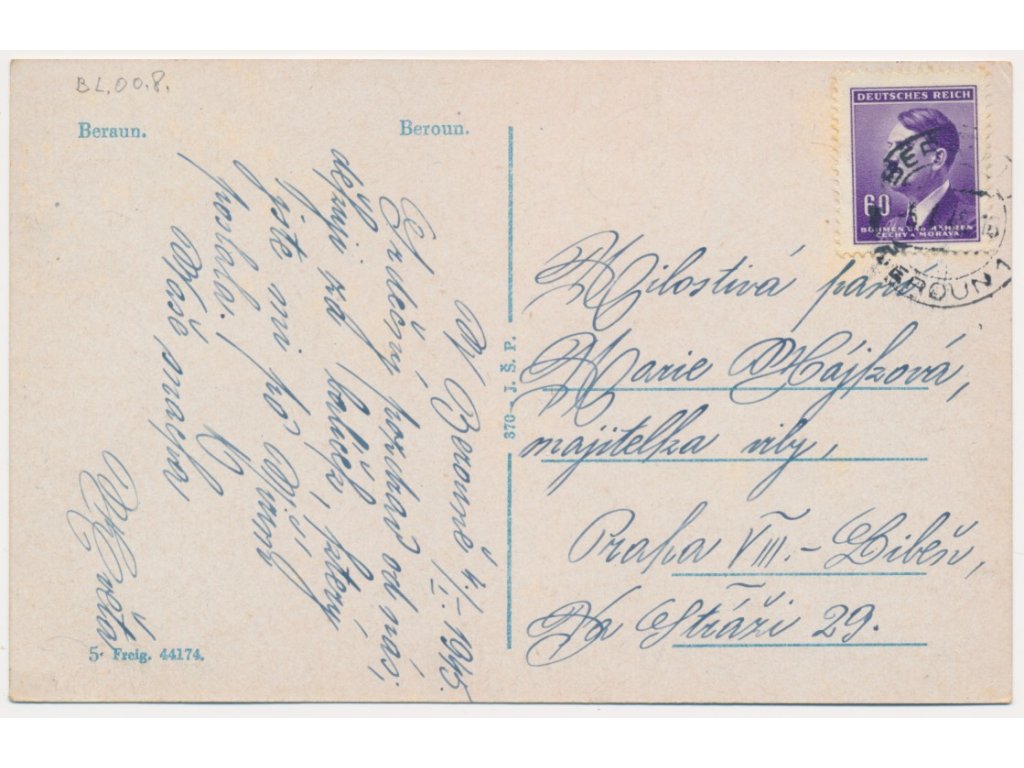 BL.008.
Beraun.
Beroun.
V Berouně 4./I. 1945.
Srdečný pozdrav od nás,
děkuji za balíček, který
jste mi po
poslala.
Vaše
Květa
370 - J. Š. P.
5· Freig. 44174.
DEUTSCHES REICH
60
BÖHMEN UND MÄHREN
ČECHY A MORAVA
BEROUN 1
Milostivá paní
Marie Hájková,
majitelka vily,
Praha VIII. - Libeň,
Na Stráži 29.